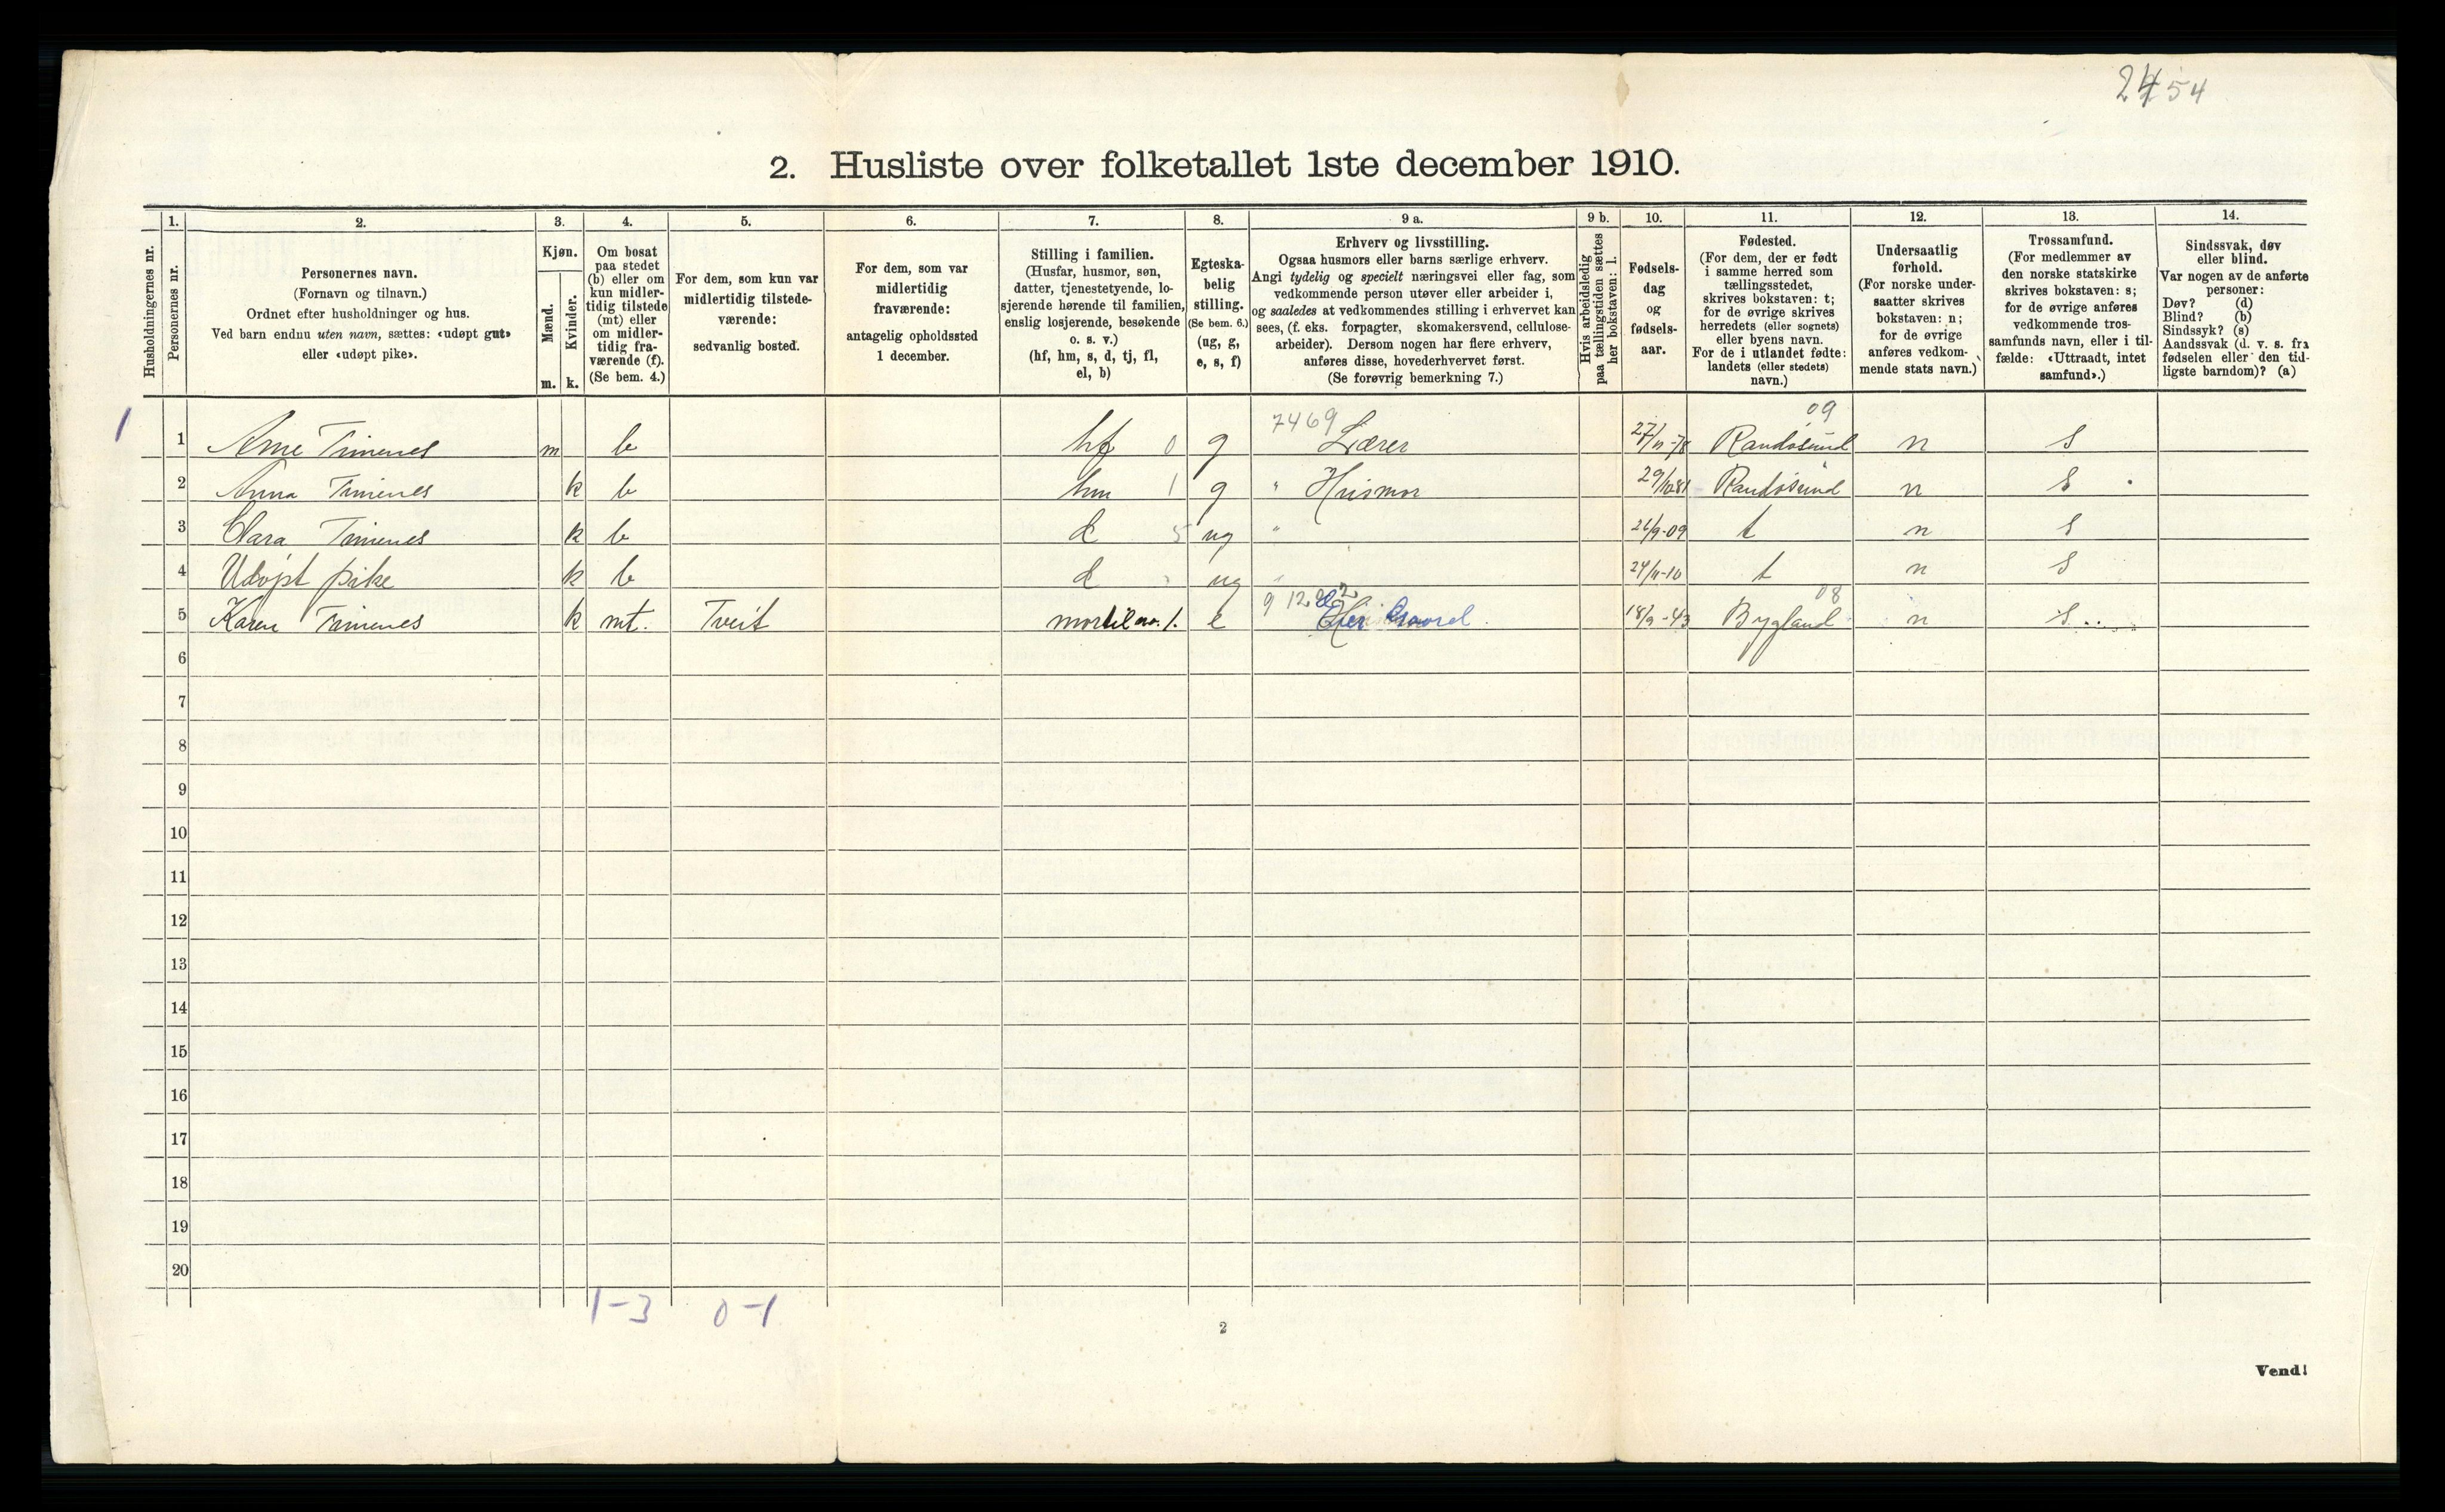 2454
2. Husliste over folketallet 1ste december 1910.
Husholdningernes nr.
1.
Personernes nr.
2.
Personernes navn.
(Fornavn og tilnavn.)
Ordnet efter husholdninger og hus.
Ved barn endnu uten navn, sættes: «udøpt gut»
eller «udøpt pike».
3.
Kjøn.
Mænd.
Kvinder.
m. k.
4.
Om bosat
paa stedet
(b) eller om
kun midler-
tidig tilstede
(mt) eller
om midler-
tidig fra-
værende (f).
(Se bem. 4.)
5.
For dem, som kun var
midlertidig tilstede-
værende:
sedvanlig bosted.
6.
For dem, som var
midlertidig
fraværende:
antagelig opholdssted
1 december.
7.
Stilling i familien.
(Husfar, husmor, søn,
datter, tjenestetyende, lo-
sjerende hørende til familien,
enslig losjerende, besøkende
o. s. v.)
(hf, hm, s, d, tj, fl,
el, b)
8.
Egteska-
belig
stilling.
(Se bem. 6.)
(ug, g,
e, s, f)
9 a.
Erhverv og livsstilling.
Ogsaa husmors eller barns særlige erhverv.
Angi tydelig og specielt næringsvei eller fag, som
vedkommende person utøver eller arbeider i,
og saaledes at vedkommendes stilling i erhvervet kan
sees, (f. eks. forpagter, skomakersvend, cellulose-
arbeider). Dersom nogen har flere erhverv,
anføres disse, hovederhvervet først.
(Se forøvrig bemerkning 7.)
9 b.
Hvis arbeidsledig
paa tællingstiden sættes
her bokstaven: l.
10.
Fødsels-
dag
og
fødsels-
aar.
11.
Fødested.
(For dem, der er født
i samme herred som
tællingsstedet,
skrives bokstaven: t;
for de øvrige skrives
herredets (eller sognets)
eller byens navn.
For de i utlandet fødte:
landets (eller stedets)
navn.)
12.
Undersaatlig
forhold.
(For norske under-
saatter skrives
bokstaven: n;
for de øvrige
anføres vedkom-
mende stats navn.)
13.
Trossamfund.
(For medlemmer av
den norske statskirke
skrives bokstaven: s;
for de øvrige anføres
vedkommende tros-
samfunds navn, eller i til-
fælde: «Uttraadt, intet
samfund».)
14.
Sindssvak, døv
eller blind.
Var nogen av de anførte
personer:
Døv? (d)
Blind? (b)
Sindssyk? (s)
Aandssvak (d. v. s. fra
fødselen eller den tid-
ligste barndom)? (a)
7469 09
1 1 Arne Timenes m b hf 0 g Lærer 27/11-78 Randøsund n s
2 Anna Timenes k b hm 1 g " Husmor 29/10-81 Randøsund n s
3 Clara Timenes k b d 5 ug " 26/9-09 t n s
4 Udøpt pike k b d ug 24/11-10 t n s
08
5 Karen Timenes k mt. Tveit mor til no. 1. e Eier Gaard. 18/9-43 Bygland n s
6
7
8
9
10
11
12
13
14
15
16
17
18
19
20
1-3 0-1
2
Vend!